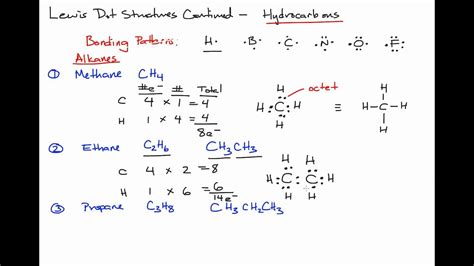 Lewis Dot Structures Continued – Hydrocarbons
Bonding Patterns: H· ·B· ·C· ·N· ·O· ·F:
Alkanes
① Methane CH4
#e- # Total
C 4 × 1 = 4
H 1 × 4 = 4
8e-
octet
H
H:C:H
H
≡
H
H-C-H
H
② Ethane C2H6 CH3CH3
C 4 × 2 = 8
H 1 × 6 = 6
14e-
H H
H:C:C:H
H H
③ Propane C3H8 CH3CH2CH3